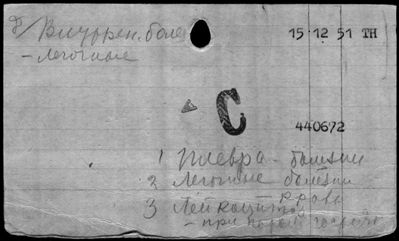 Внутрен. боле 15 12 51 TH
- легочные
С
440672
1 Плевра - болезни
2 Легочные болезни
3 Лейкоциты крови
- при